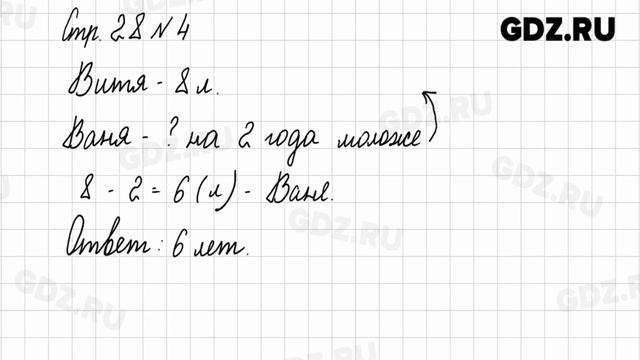 Стр. 28 N 4
GDZ.RU
Витя - 8 л.
Ваня - ? на 2 года моложе
8 - 2 = 6 (л) - Ване.
Ответ: 6 лет.
GDZ.RU
GDZ.RU
GDZ.RU
GDZ.RU
GDZ.RU
GDZ.RU